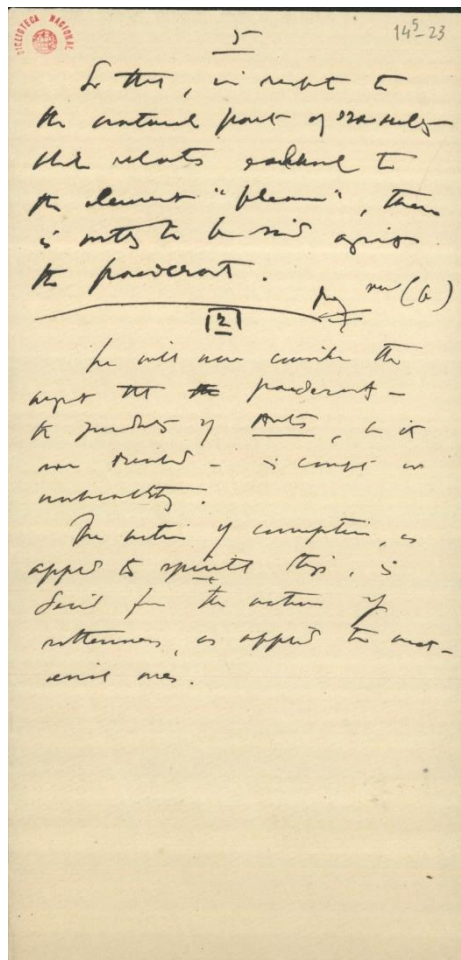 BIBLIOTECA NACIONAL
14⁵-23
5
So that, in respect to
the natural part of sexuality
which relates to
the element "pleasure", there
is nothing to be said against
the paederast.
(b)
2
We will now consider the
that the paederast -
the of, as it
were - is corrupt in
The notion of corruption, as
applied to spiritual things, is
derived from the notion of
rottenness, as applied to mat-
erial ones.